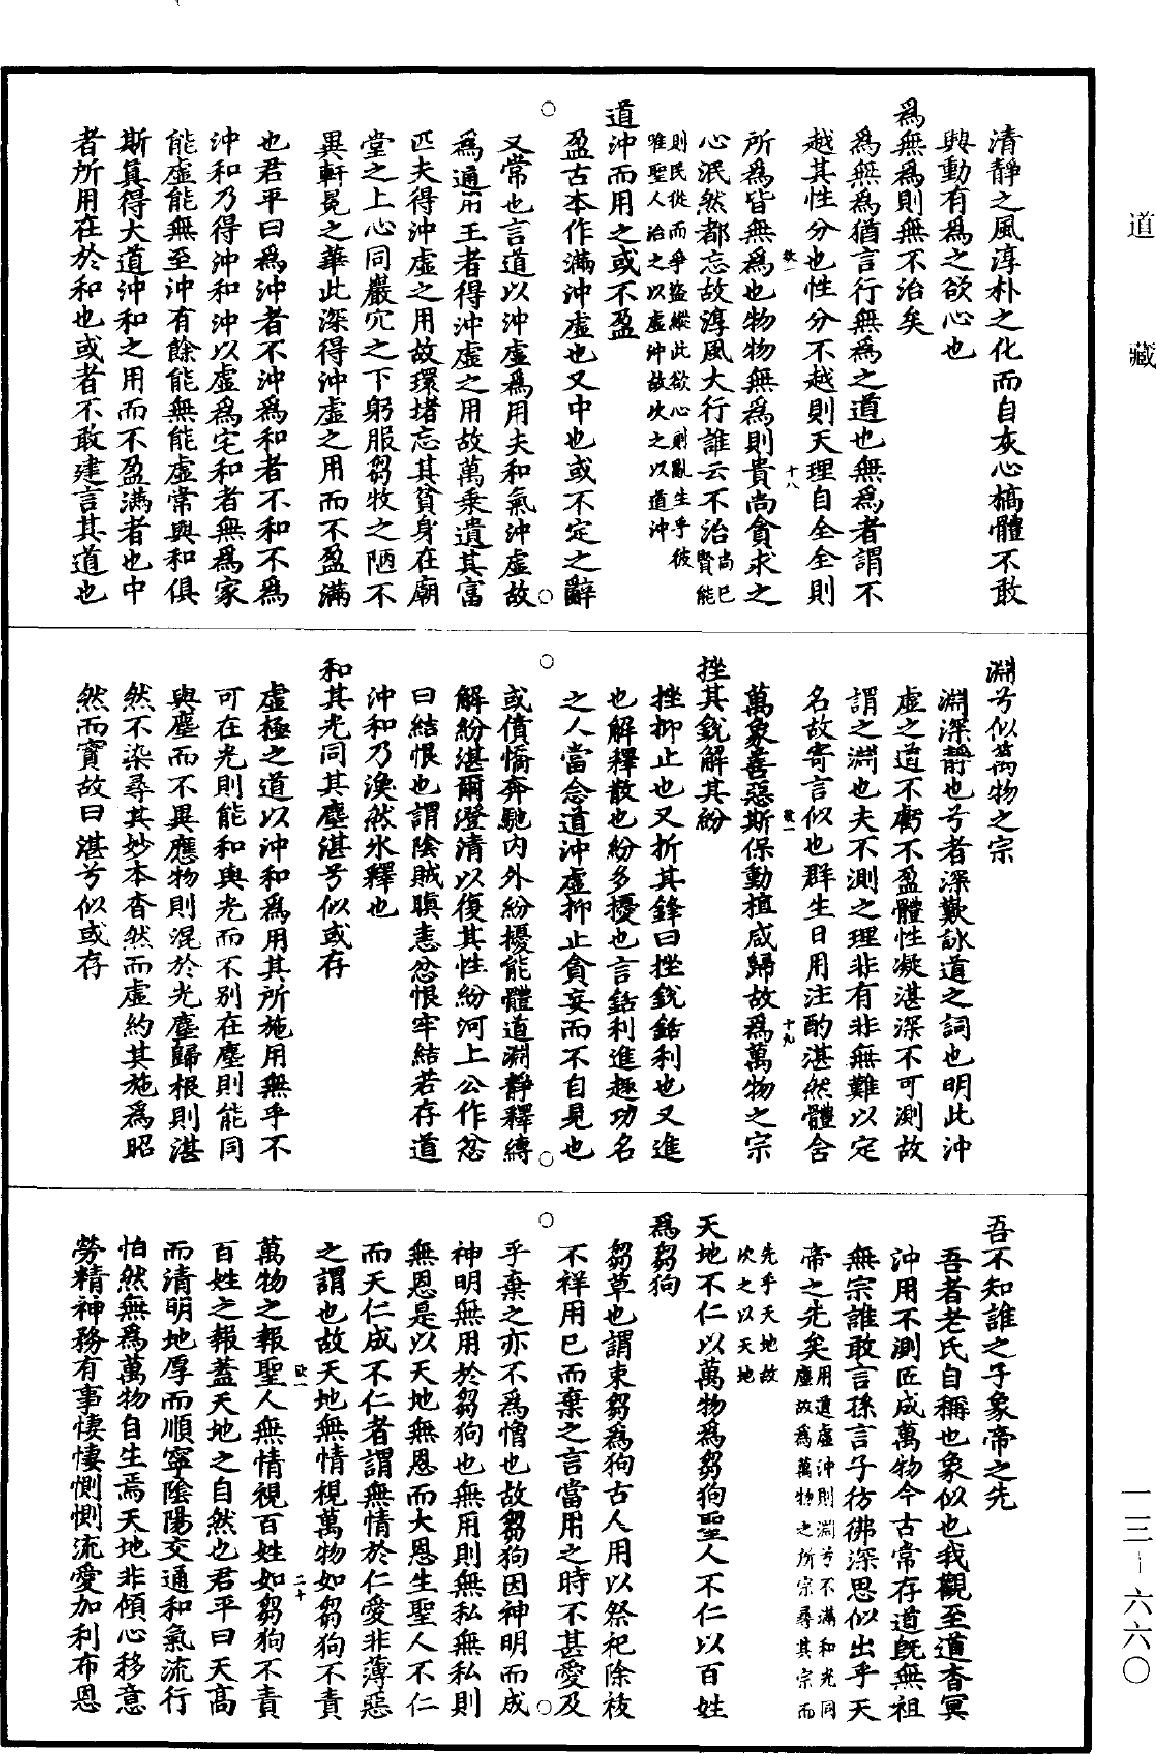 道藏
清靜之風淳朴之化而自灰心槁體不敢
興動有爲之欲心也
爲無爲則無不治矣
爲無爲猶言行無爲之道也無爲者謂不
越其性分也性分不越則天理自全全則
欲一
十八
所爲皆無爲也物物無爲則貴尚貪求之
心泯然都忘故淳風大行誰云不治尚賢已能
則民從而爭盜縱此欲心則亂生乎彼
唯聖人治之以虛沖故次之以道沖
道沖而用之或不盈
盈古本作滿沖虛也又中也或不定之辭
又常也言道以沖虛爲用夫和氣沖虛故
爲通用王者得沖虛之用故萬乘遺其富
匹夫得沖虛之用故環堵忘其貧身在廟
堂之上心同巖穴之下躬服芻牧之陋不
異軒冕之華此深得沖虛之用而不盈滿
也君平曰爲沖者不沖爲和者不和不爲
沖和乃得沖和沖以虛爲宅和者無爲家
能虛能無至沖有餘能無能虛常與和俱
斯眞得大道沖和之用而不盈滿者也中
者所用在於和也或者不敢建言其道也
淵兮似萬物之宗
淵深靜也兮者深歎詠道之詞也明此沖
虛之道不虧不盈體性凝湛深不可測故
謂之淵也夫不測之理非有非無難以定
名故寄言似也群生日用注酌湛然體含
欲一
十九
萬象善惡斯保動植咸歸故爲萬物之宗
挫其銳解其紛
挫抑止也又折其鋒曰挫銳銛利也又進
也解釋散也紛多擾也言銛利進趣功名
之人當念道沖虛抑止貪妄而不自見也
或僨憍奔馳內外紛擾能體道淵靜釋縛
解紛湛爾澄清以復其性紛河上公作忿
曰結恨也謂陰賊瞋恚忿恨牢結若存道
沖和乃渙然氷釋也
和其光同其塵湛兮似或存
虛極之道以沖和爲用其所施用無乎不
可在光則能和與光而不別在塵則能同
與塵而不異應物則混於光塵歸根則湛
然不染尋其妙本杳然而虛約其施爲昭
然而實故曰湛兮似或存
吾不知誰之子象帝之先
吾者老氏自稱也象似也我觀至道杳冥
沖用不測匠成萬物今古常存道旣無祖
無宗誰敢言孫言子彷彿深思似出乎天
帝之先矣用道虛沖則淵兮不滿和光同
塵故爲萬物之所宗尋其宗而
先乎天地故
次之以天地
天地不仁以萬物爲芻狗聖人不仁以百姓
爲芻狗
芻草也謂束芻爲狗古人用以祭祀除祓
不祥用已而棄之言當用之時不甚愛及
乎棄之亦不爲憎也故芻狗因神明而成
神明無用於芻狗也無用則無私無私則
無恩是以天地無恩而大恩生聖人不仁
而天仁成不仁者謂無情於仁愛非薄惡
之謂也故天地無情視萬物如芻狗不責
欲一
二十
萬物之報聖人無情視百姓如芻狗不責
百姓之報蓋天地之自然也君平曰天高
而清明地厚而順寧陰陽交通和氣流行
怕然無爲萬物自生焉天地非傾心移意
勞精神務有事悽悽惻惻流愛加利布恩
一三-六六〇